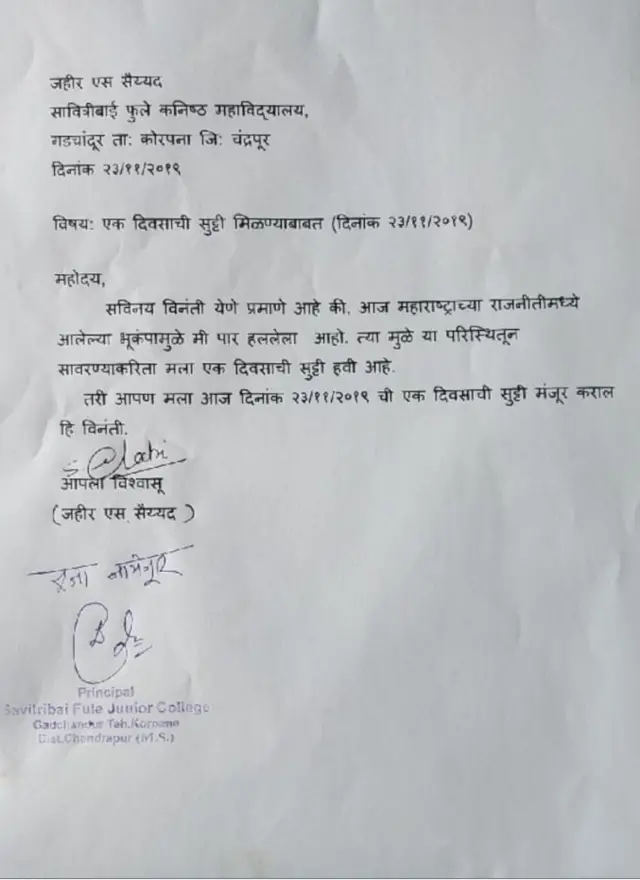 जहीर एस सैय्यद
सावित्रीबाई फुले कनिष्ठ महाविद्यालय,
गडचांदूर ताः कोरपना जिः चंद्रपूर
दिनांक २३/११/२०१९
विषयः एक दिवसाची सुट्टी मिळण्याबाबत (दिनांक २३/११/२०१९)
महोदय,
सविनय विनंती येणे प्रमाणे आहे की, आज महाराष्ट्राच्या राजनीतीमध्ये
आलेल्या भूकंपामुळे मी पार हललेला आहो. त्या मुळे या परिस्थितून
सावरण्याकरिता मला एक दिवसाची सुट्टी हवी आहे.
तरी आपण मला आज दिनांक २३/११/२०१९ ची एक दिवसाची सुट्टी मंजूर कराल
हि विनंती.
आपला विश्वासू
(जहीर एस सैय्यद )
रजा नामंजूर
Principal
Savitribai Fule Junior College
Gadchandur Teh.Korpana
Dist.Chandrapur (M.S.)